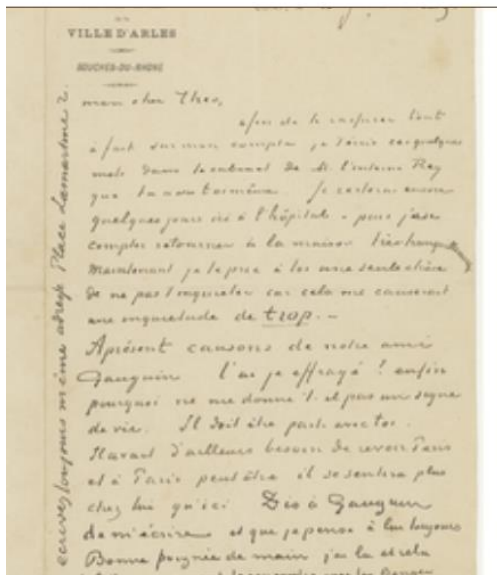 VILLE D'ARLES
BOUCHES-DU-RHÔNE
mon cher Theo,
afin de te rassurer tout
à fait sur mon compte je t'écris ces quelques
mots dans le cabinet de M. l'interne Rey
que tu as vu toi-même. Je resterai encore
quelques jours ici à l'hôpital - puis j'ose
compter retourner à la maison très tranquillement
Maintenant je te prie à toi une seule chose
de ne pas t'inquiéter car cela me causerait
une inquiétude de trop. -
Apresent causons de notre ami
Gauguin l'ai je effrayé? enfin
pourquoi ne me donne-t-il pas un signe
de vie. Il doit être parti avec toi.
Il avait d'ailleurs besoin de revoir Paris
et à Paris peut être il se sentira plus
chez lui qu'ici Dis à Gauguin
de m'écrire et que je pense à lui toujours
Bonne poignée de main j'ai lu et relu
écrivez toujours même adresse Place Lamartine 2.